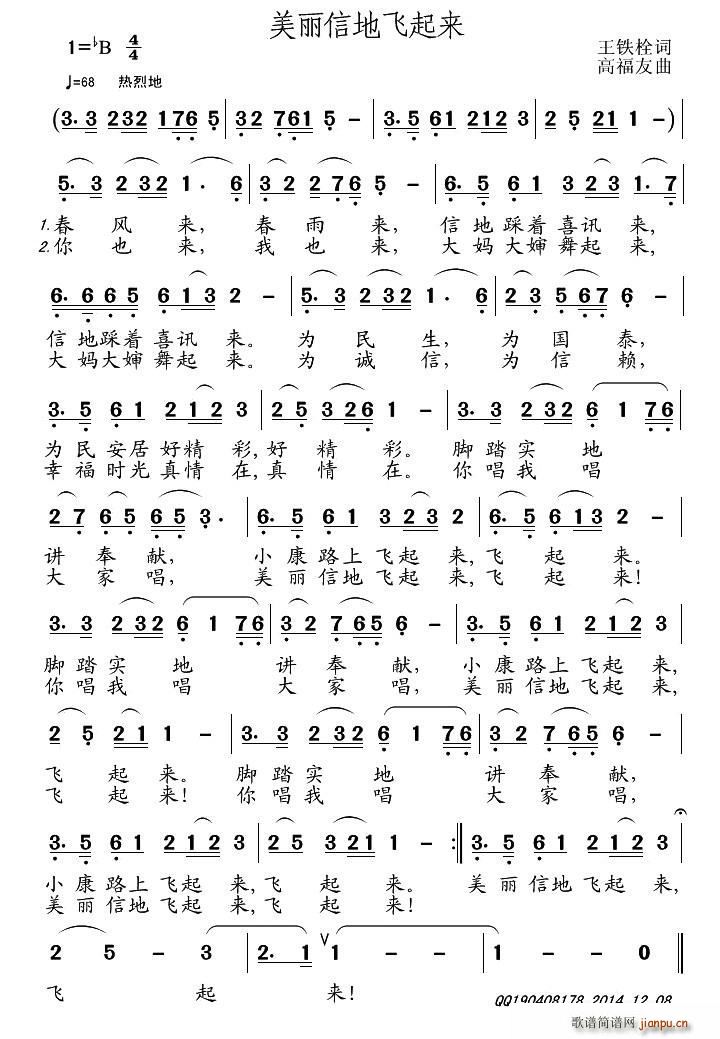 美丽信地飞起来
1=♭B 4/4
王铁栓词
高福友曲
♩=68 热烈地
(3. 3 232 176 5 | 32 761 5 - | 3. 5 61 212 3 | 2 5 21 1 -)
5. 3 2 32 1. 6 | 3 2 2 76 5 - | 6. 5 6 1 3 2 3 1. 7
1.春 风 来, 春 雨 来, 信 地 踩 着 喜 讯 来,
2.你 也 来, 我 也 来, 大 妈 大 婶 舞 起 来,
6. 6 6 5 6 1 3 2 - | 5. 3 2 3 2 1. 6 | 3 2 5 6 7 6 -
信 地 踩 着 喜 讯 来。 为 民 生, 为 国 泰,
大 妈 大 婶 舞 起 来。 为 诚 信, 为 信 赖,
3. 5 6 1 2 1 2 3 | 2 5 3 26 1 - | 3. 3 2 32 6 1 76
为 民 安 居 好 精 彩, 好 精 彩。 脚 踏 实 地
幸 福 时 光 真 情 在, 真 情 在。 你 唱 我 唱
2 7 6 5 6 5 3. | 6. 5 6 1 3 2 3 2 | 6. 5 6 1 3 2 -
讲 奉 献, 小 康 路 上 飞 起 来, 飞 起 来。
大 家 唱, 美 丽 信 地 飞 起 来, 飞 起 来!
3. 3 2 32 6 1 76 | 3 2 7 65 6 - | 3. 5 6 1 2 1 2 3
脚 踏 实 地 讲 奉 献, 小 康 路 上 飞 起 来,
你 唱 我 唱 大 家 唱, 美 丽 信 地 飞 起 来,
2 5 2 1 1 - | 3. 3 2 32 6 1 76 | 3 2 7 65 6 -
飞 起 来。 脚 踏 实 地 讲 奉 献,
飞 起 来! 你 唱 我 唱 大 家 唱,
3. 5 6 1 2 1 2 3 | 2 5 3 21 1 - :|| 3. 5 6 1 2 1 2 3
小 康 路 上 飞 起 来, 飞 起 来。 美 丽 信 地 飞 起 来,
美 丽 信 地 飞 起 来, 飞 起 来!
2 5 - 3 | 2. 1 V 1 - - | 1 - - 0 ||
飞 起 来!
QQ190408178 2014.12.08
歌谱简谱网
jianpu.cn